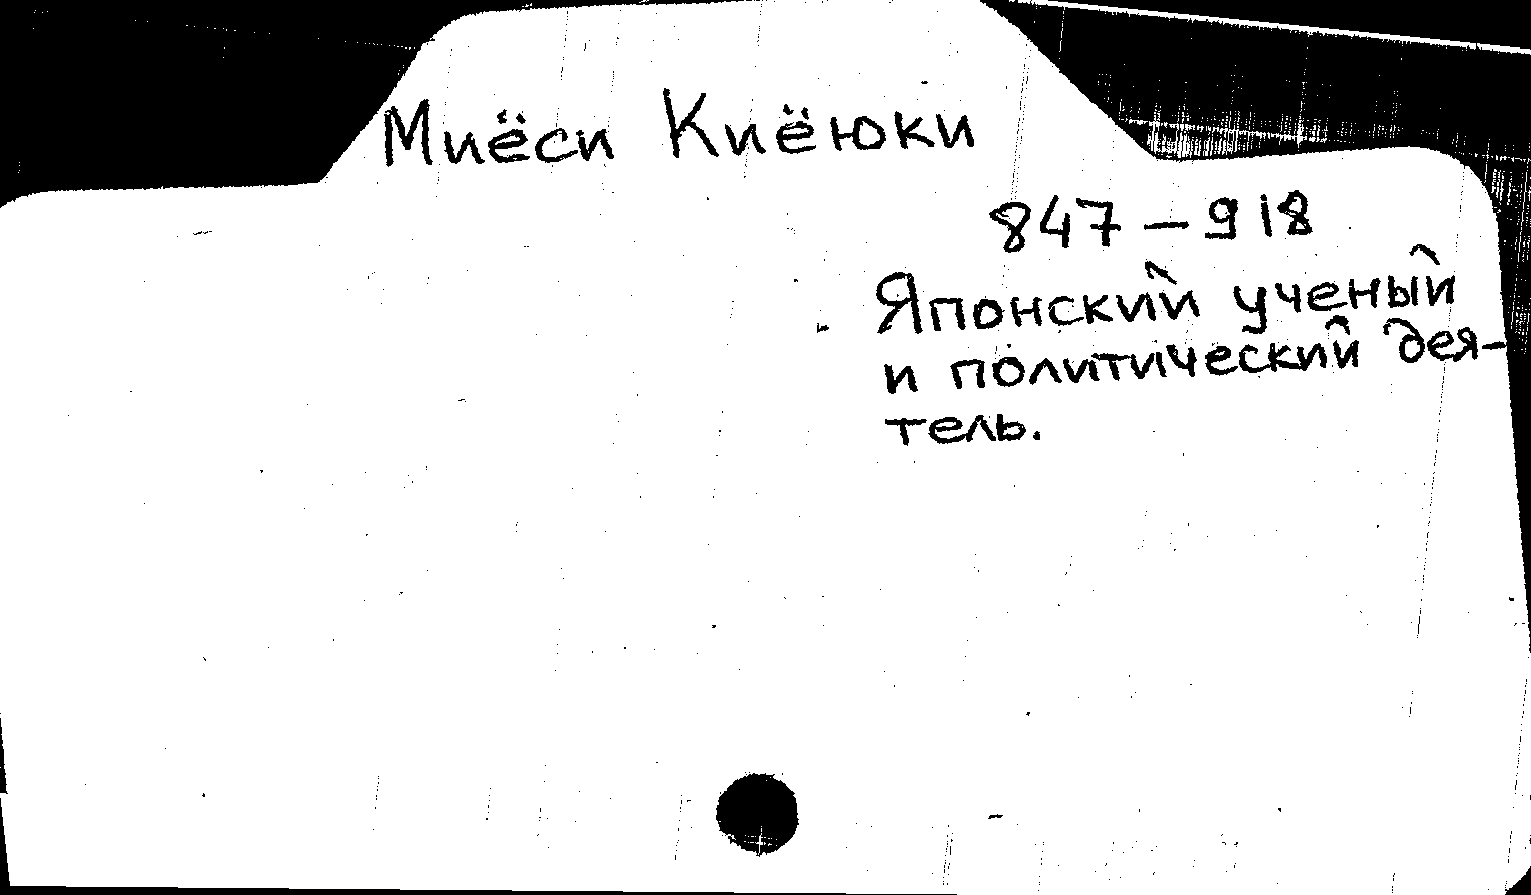 Миёси Киёюки
847 – 918
Японский ученый
и политический дея-
тель.